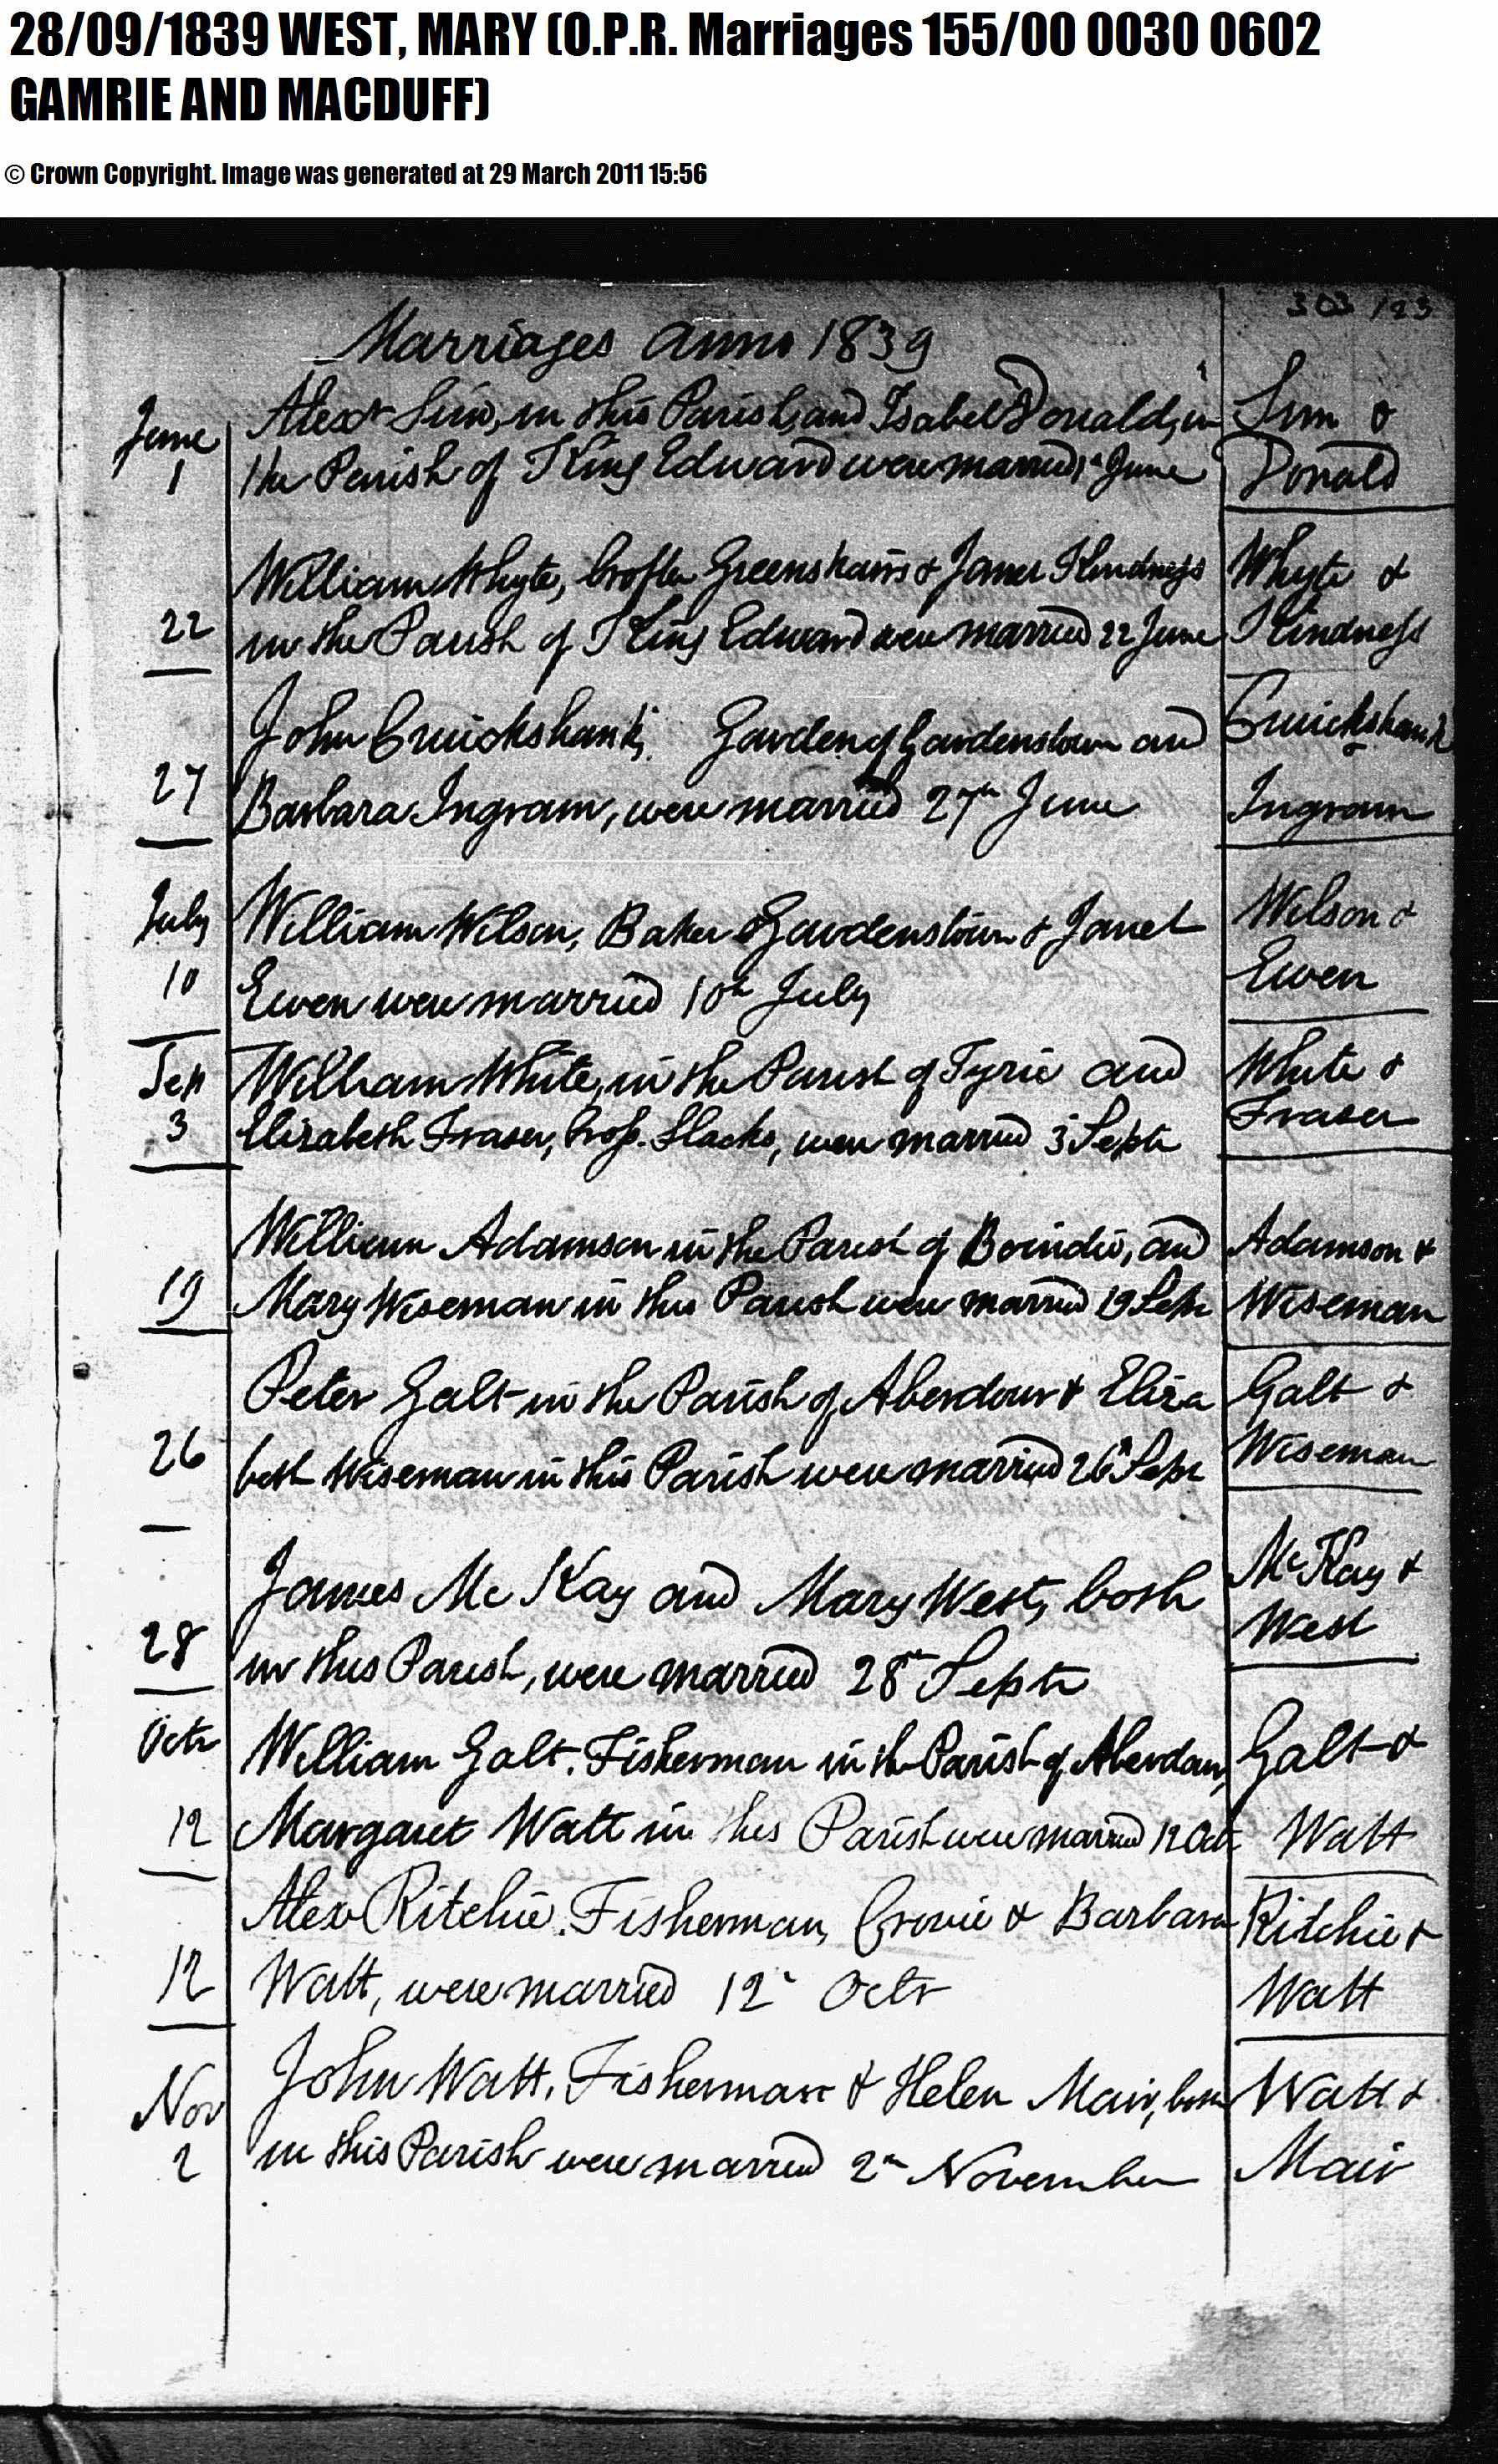 28/09/1839 WEST, MARY (O.P.R. Marriages 155/00 0030 0602
GAMRIE AND MACDUFF)
© Crown Copyright. Image was generated at 29 March 2011 15:56
303 / 23
Marriages anno 1839
June
1
Alexr Sim, in this Parish, and Isabel Donald, in
the Parish of King Edward were married 1st June
Sim &
Donald
22
William Whyte, Crofter Greenskairs & Janet Kindness
in the Parish of King Edward were married 22 June
Whyte &
Kindness
27
John Cruickshank, Gardenr Gardenstown and
Barbara Ingram, were married 27th June
Cruickshank
&
Ingram
July
10
William Wilson, Baker Gardenstown & Janet
Ewen were married 10th July
Wilson &
Ewen
Sep
3
William White, in the Parish of Tyrie and
Elizabeth Fraser, Slacks, were married 3 Septr
White &
Fraser
19
William Adamson in the Parish of Boindie, and
Mary Wiseman in this Parish were married 19 Sepr
Adamson &
Wiseman
26
Peter Galt in the Parish of Aberdour & Eliza
beth Wiseman in this Parish were married 26th Sepr
Galt &
Wiseman
28
James Mc Kay and Mary West, both
in this Parish, were married 28th Septr
McKay &
West
Octr
12
William Galt, Fisherman in the Parish of Aberdour,
Margaret Watt in this Parish were married 12 Oct
Galt &
Watt
12
Alexr Ritchie, Fisherman, Crovie & Barbara
Watt, were married 12th Octr
Ritchie &
Watt
Nov
2
John Watt, Fisherman & Helen Mair, both
in this Parish were married 2nd November
Watt &
Mair